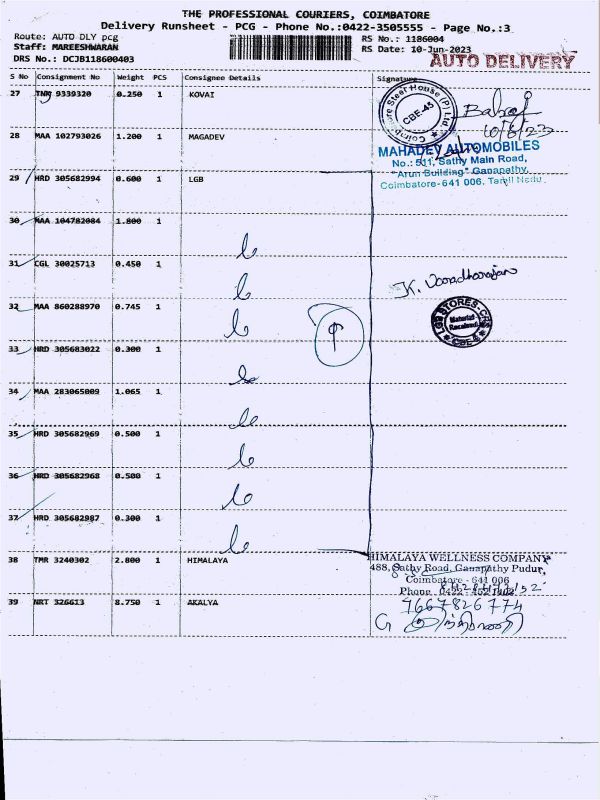 THE PROFESSIONAL COURIERS, COIMBATORE
Delivery Runsheet - PCG - Phone No.:0422-3505555 - Page No.:3
Route: AUTO DLY pcg RS No.: 1186004
Staff: MAREESHWARAN RS Date: 10-Jun-2023
DRS No.: DCJB118600403 AUTO DELIVERY
S No Consignment No Weight PCS Consignee Details Signature
27 TNM 9339320 0.250 1 KOVAI
Coimbatore Steer House (P) Ltd
CBE-45
10/6/23
28 MAA 102793026 1.200 1 MAGADEV
MAHADEV AUTOMOBILES
No.: 511, Sathy Main Road,
"Arun Building" Ganapathy,
Coimbatore-641 006. Tamil Nadu.
29 HRD 305682994 0.600 1 LGB
30 MAA 104782084 1.800 1
31 CGL 30025713 0.450 1
K. Varadharajan
32 MAA 860288970 0.745 1
LGB STORES-CRS
Material Received
CBE-6
33 HRD 305683022 0.300 1
34 MAA 283065009 1.065 1
35 HRD 305682969 0.500 1
36 HRD 305682968 0.500 1
37 HRD 305682987 0.300 1
38 TMR 3240302 2.800 1 HIMALAYA
HIMALAYA WELLNESS COMPANY
488, Sathy Road, Ganapathy Pudur,
Coimbatore - 641 006
Phone 0422-
39 NRT 326613 8.750 1 AKALYA
7667826774